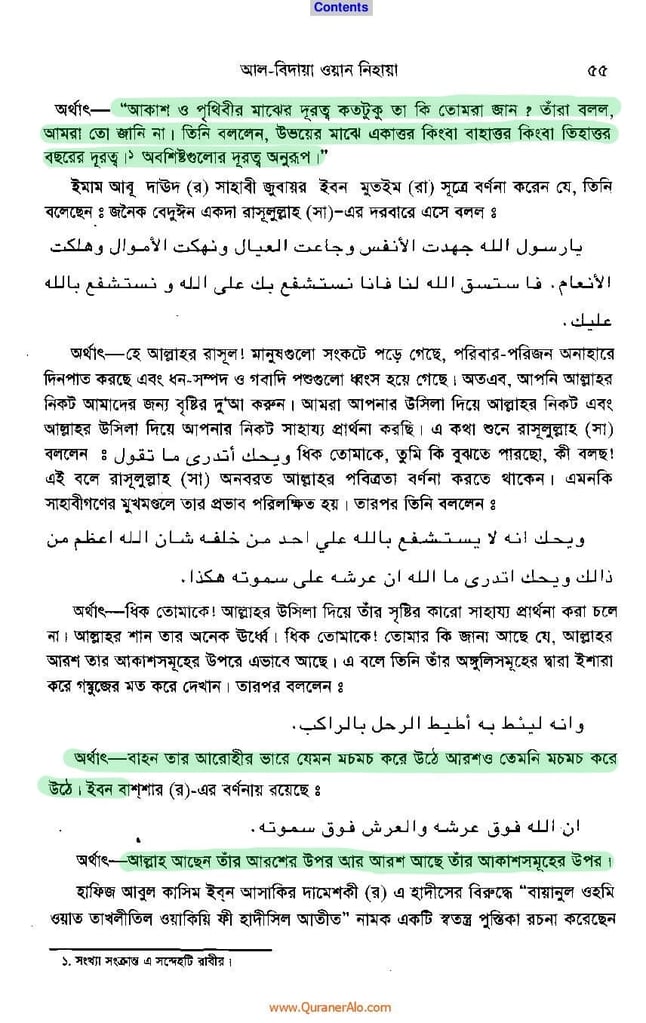 Contents
আল-বিদায়া ওয়ান নিহায়া ৫৫
অর্থাৎ— “আকাশ ও পৃথিবীর মাঝের দূরত্ব কতটুকু তা কি তোমরা জান ? তাঁরা বলল,
আমরা তো জানি না। তিনি বললেন, উভয়ের মাঝে একাত্তর কিংবা বাহাত্তর কিংবা তিহাত্তর
বছরের দূরত্ব।১ অবশিষ্টগুলোর দূরত্ব অনুরূপ।”
ইমাম আবূ দাঊদ (র) সাহাবী জুবায়র ইবন মুতইম (রা) সূত্রে বর্ণনা করেন যে, তিনি
বলেছেন ঃ জনৈক বেদুঈন একদা রাসূলুল্লাহ (সা)-এর দরবারে এসে বলল ঃ
يارسول الله جهدت الأنفس وجاعت العيال ونهكت الأموال وهلكت
الأنعام. فا ستسق الله لنا فانا نستشفع بك على الله و نستشفع بالله
عليك.
অর্থাৎ—হে আল্লাহর রাসূল! মানুষগুলো সংকটে পড়ে গেছে, পরিবার-পরিজন অনাহারে
দিনপাত করছে এবং ধন-সম্পদ ও গবাদি পশুগুলো ধ্বংস হয়ে গেছে। অতএব, আপনি আল্লাহর
নিকট আমাদের জন্য বৃষ্টির দু‘আ করুন। আমরা আপনার উসিলা দিয়ে আল্লাহর নিকট এবং
আল্লাহর উসিলা দিয়ে আপনার নিকট সাহায্য প্রার্থনা করছি। এ কথা শুনে রাসূলুল্লাহ (সা)
বললেন ঃ ويحك أتدرى ما تقول ধিক তোমাকে, তুমি কি বুঝতে পারছো, কী বলছ!
এই বলে রাসূলুল্লাহ (সা) অনবরত আল্লাহর পবিত্রতা বর্ণনা করতে থাকেন। এমনকি
সাহাবীগণের মুখমণ্ডলে তার প্রভাব পরিলক্ষিত হয়। তারপর তিনি বললেন ঃ
ويحك انه لا يستشفع بالله علي احد من خلقه شان الله اعظم من
ذالك ويحك اتدرى ما الله ان عرشه على سموته هكذا.
অর্থাৎ—ধিক তোমাকে! আল্লাহর উসিলা দিয়ে তাঁর সৃষ্টির কারো সাহায্য প্রার্থনা করা চলে
না। আল্লাহর শান তার অনেক ঊর্ধ্বে। ধিক তোমাকে! তোমার কি জানা আছে যে, আল্লাহর
আরশ তার আকাশসমূহের উপরে এভাবে আছে। এ বলে তিনি তাঁর অঙ্গুলিসমূহের দ্বারা ইশারা
করে গম্বুজের মত করে দেখান। তারপর বললেন ঃ
وانه ليئط به أطيط الرحل بالراكب.
অর্থাৎ—বাহন তার আরোহীর ভারে যেমন মচমচ করে উঠে আরশও তেমনি মচমচ করে
উঠে। ইবন বাশ্শার (র)-এর বর্ণনায় রয়েছে ঃ
ان الله فوق عرشه والعرش فوق سموته.
অর্থাৎ—আল্লাহ আছেন তাঁর আরশের উপর আর আরশ আছে তাঁর আকাশসমূহের উপর।
হাফিজ আবুল কাসিম ইব্‌ন আসাকির দামেশকী (র) এ হাদীসের বিরুদ্ধে “বায়ানুল ওহমি
ওয়াত তাখলীতিল ওয়াকিয়ি ফী হাদীসিল আতীত” নামক একটি স্বতন্ত্র পুস্তিকা রচনা করেছেন
১. সংখ্যা সংক্রান্ত এ সন্দেহটি রাবীর।
www.QuranerAlo.com